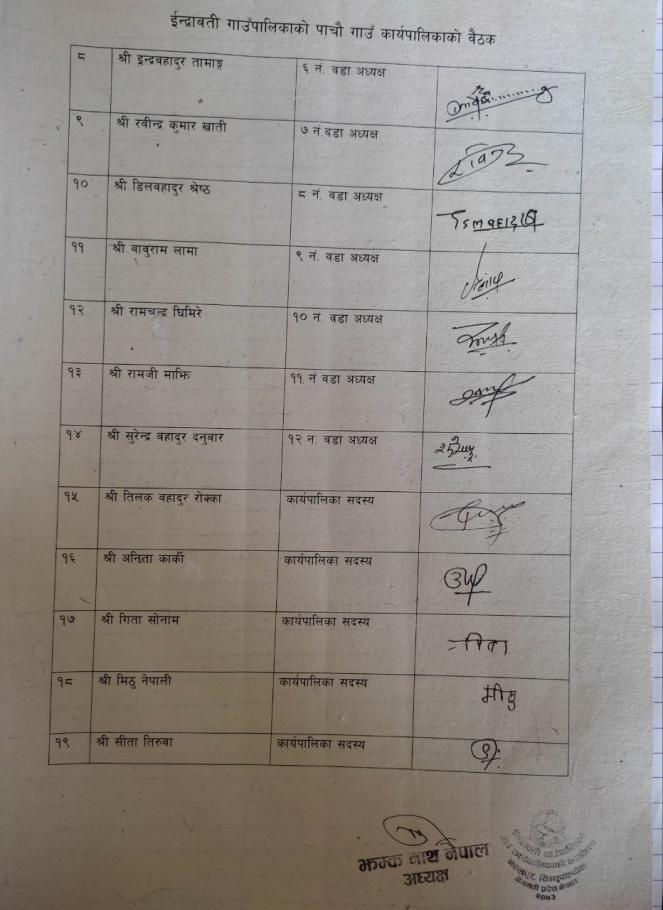 ईन्द्रावती गाउँपालिकाको पाचौ गाउँ कार्यपालिकाको वैठक
८ श्री इन्द्रवहादुर तामाङ्ग ६ नं. वडा अध्यक्ष
९ श्री रवीन्द्र कुमार खाती ७ नं.वडा अध्यक्ष
१० श्री डिलवहादुर श्रेष्ठ ८ नं. वडा अध्यक्ष
११ श्री वावुराम लामा ९ नं. वडा अध्यक्ष
१२ श्री रामचन्द्र घिमिरे १० नं. वडा अध्यक्ष
१३ श्री रामजी माझि ११ नं वडा अध्यक्ष
१४ श्री सुरेन्द्र वहादुर दनुवार १२ नं. वडा अध्यक्ष
१५ श्री तिलक वहादुर रोक्का कार्यपालिका सदस्य
१६ श्री अनिता कार्की कार्यपालिका सदस्य
१७ श्री गिता सोनाम कार्यपालिका सदस्य
१८ श्री मिठु नेपाली कार्यपालिका सदस्य मीठु
१९ श्री सीता तिरुवा कार्यपालिका सदस्य
झम्क नाथ नेपाल
अध्यक्ष
२०७३